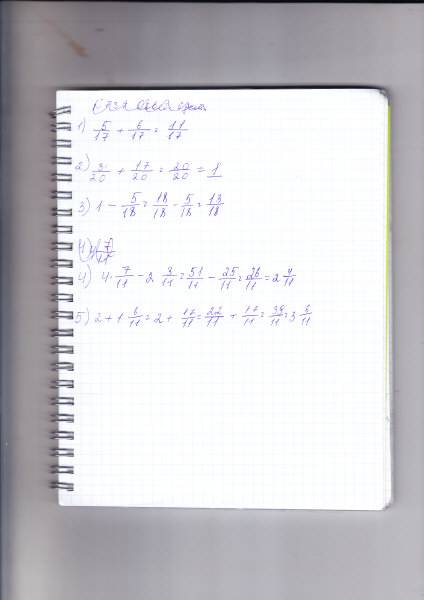 1) 5/17 + 6/17 = 11/17
2) 3/20 + 17/20 = 20/20 = 1
3) 1 - 5/18 = 18/18 - 5/18 = 13/18
4) 4 7/11 - 2 3/11 = 51/11 - 25/11 = 26/11 = 2 4/11
5) 2 + 1 6/11 = 2 + 17/11 = 22/11 + 17/11 = 39/11 = 3 6/11